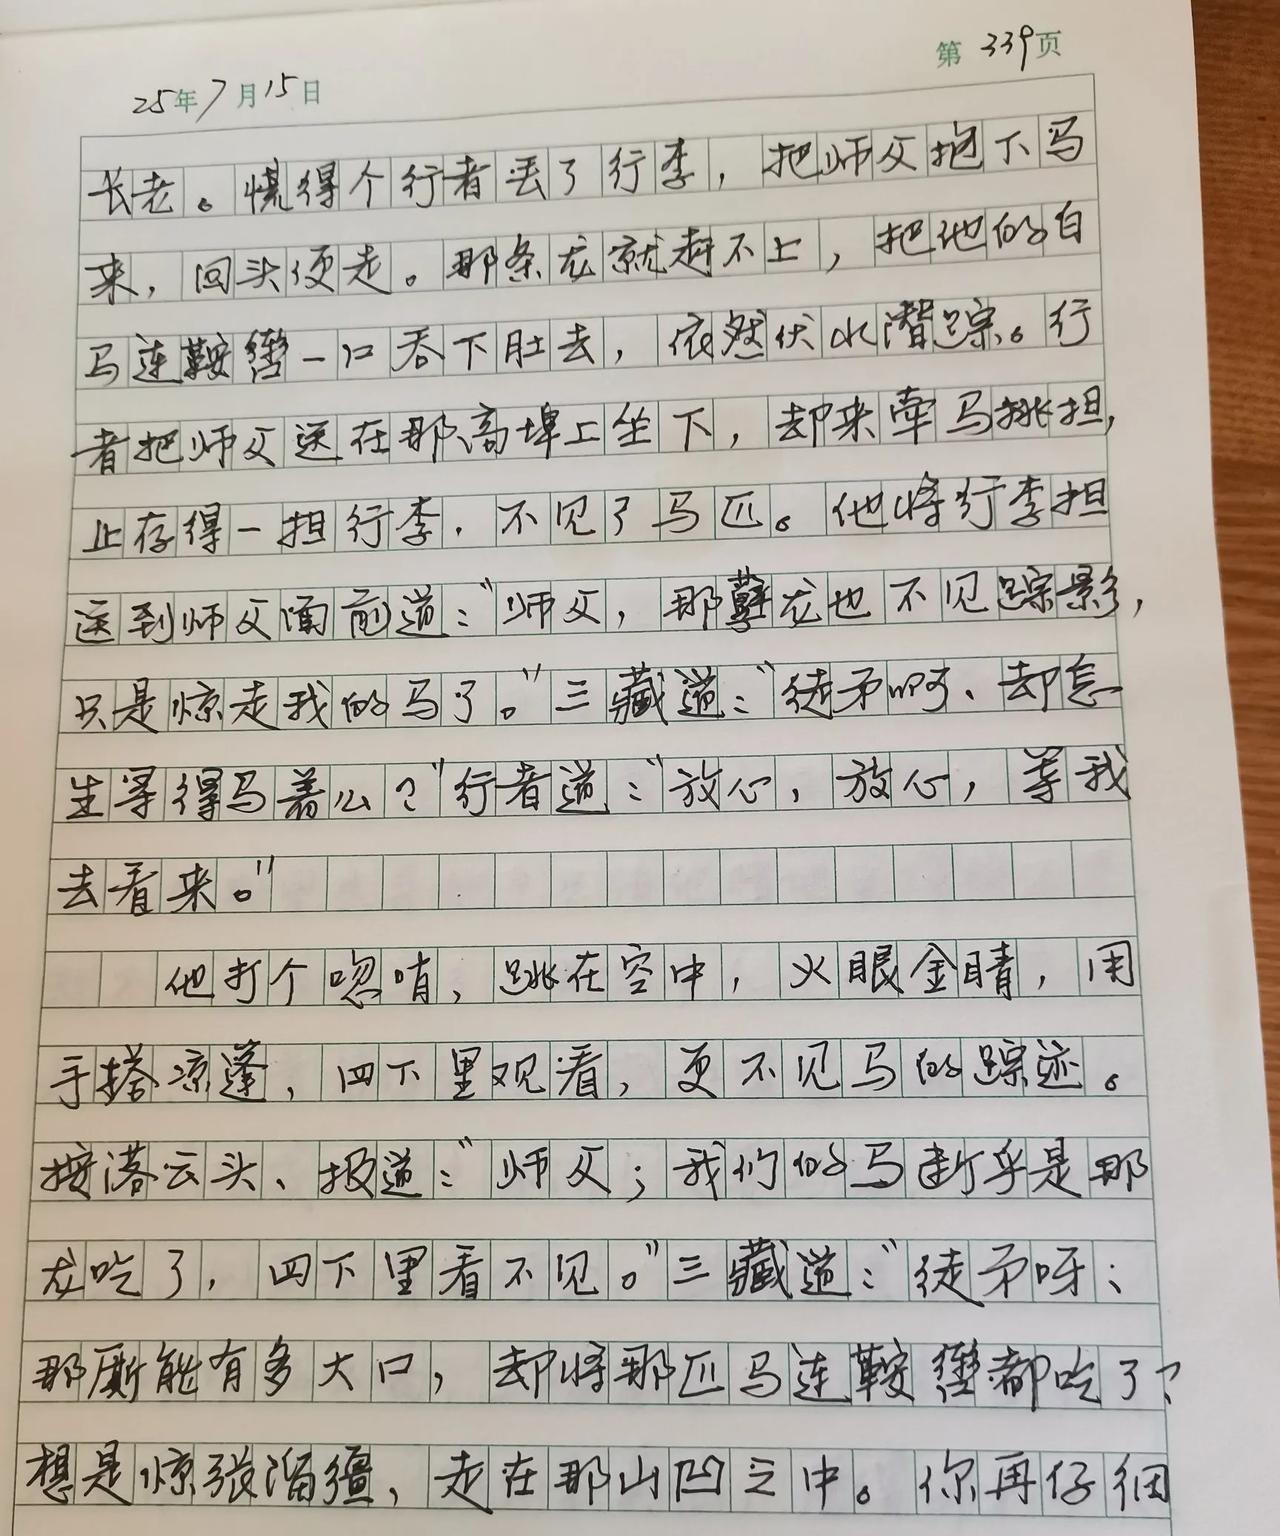 第339页
25年7月15日
长老。慌得个行者丢了行李，把师父抱下马
来，回头便走。那条龙就赶不上，把他的白
马连鞍辔一口吞下肚去，依然伏水潜踪。行
者把师父送在那高埠上坐下，却来牵马挑担，
止存得一担行李，不见了马匹。他将行李担
送到师父面前道："师父，那孽龙也不见踪影，
只是惊走我的马了。"三藏道："徒弟啊、却怎
生寻得马着么？"行者道："放心，放心，等我
去看来。"
他打个唿哨，跳在空中，火眼金睛，用
手搭凉蓬，四下里观看，更不见马的踪迹。
按落云头、报道："师父；我们的马断乎是那
龙吃了，四下里看不见。"三藏道："徒弟呀；
那厮能有多大口，却将那匹马连鞍辔都吃了？
想是惊张溜缰、走在那山凹之中。你再仔细